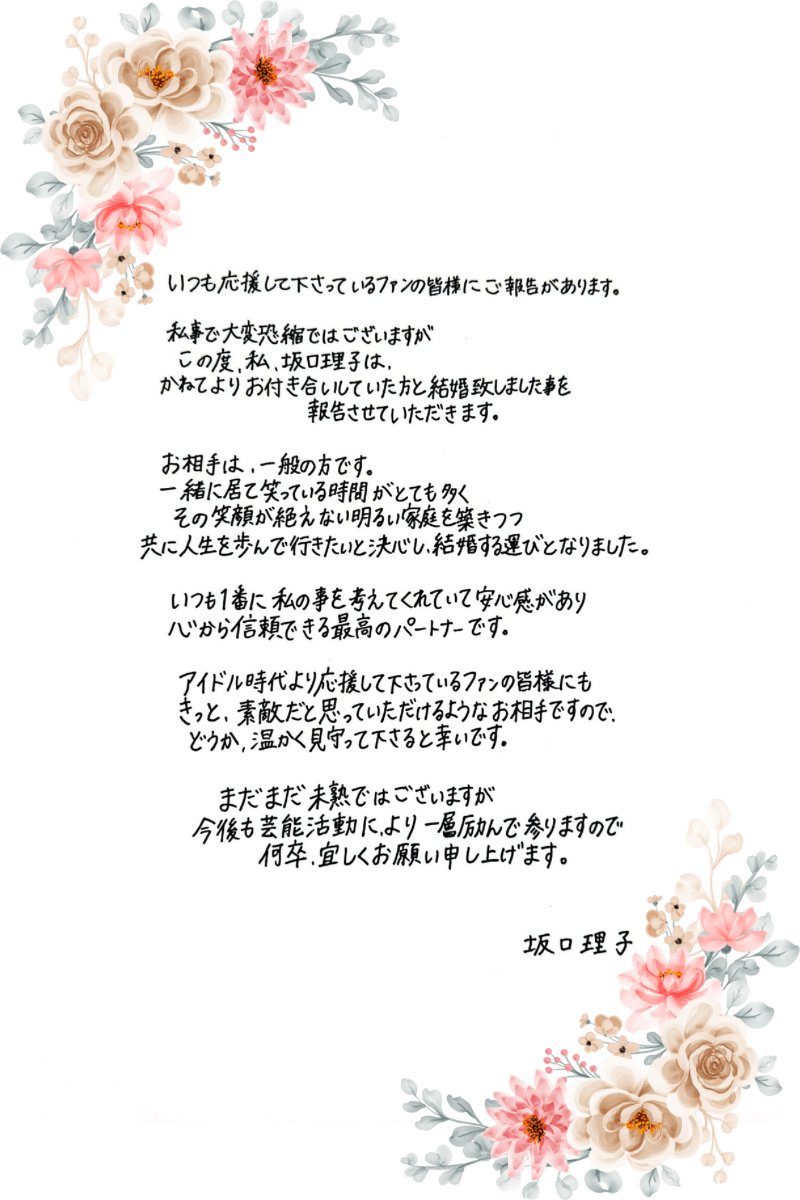 いつも応援して下さっているファンの皆様にご報告があります。
私事で大変恐縮ではございますが
この度、私、坂口理子は、
かねてよりお付き合いしていた方と結婚致しました事を
報告させていただきます。
お相手は、一般の方です。
一緒に居て笑っている時間がとても多く
その笑顔が絶えない明るい家庭を築きつつ
共に人生を歩んで行きたいと決心し、結婚する運びとなりました。
いつも1番に私の事を考えてくれていて安心感があり
心から信頼できる最高のパートナーです。
アイドル時代より応援して下さっているファンの皆様にも
きっと、素敵だと思っていただけるようなお相手ですので、
どうか、温かく見守って下さると幸いです。
まだまだ未熟ではございますが
今後も芸能活動に、より一層励んで参りますので
何卒、宜しくお願い申し上げます。
坂口理子